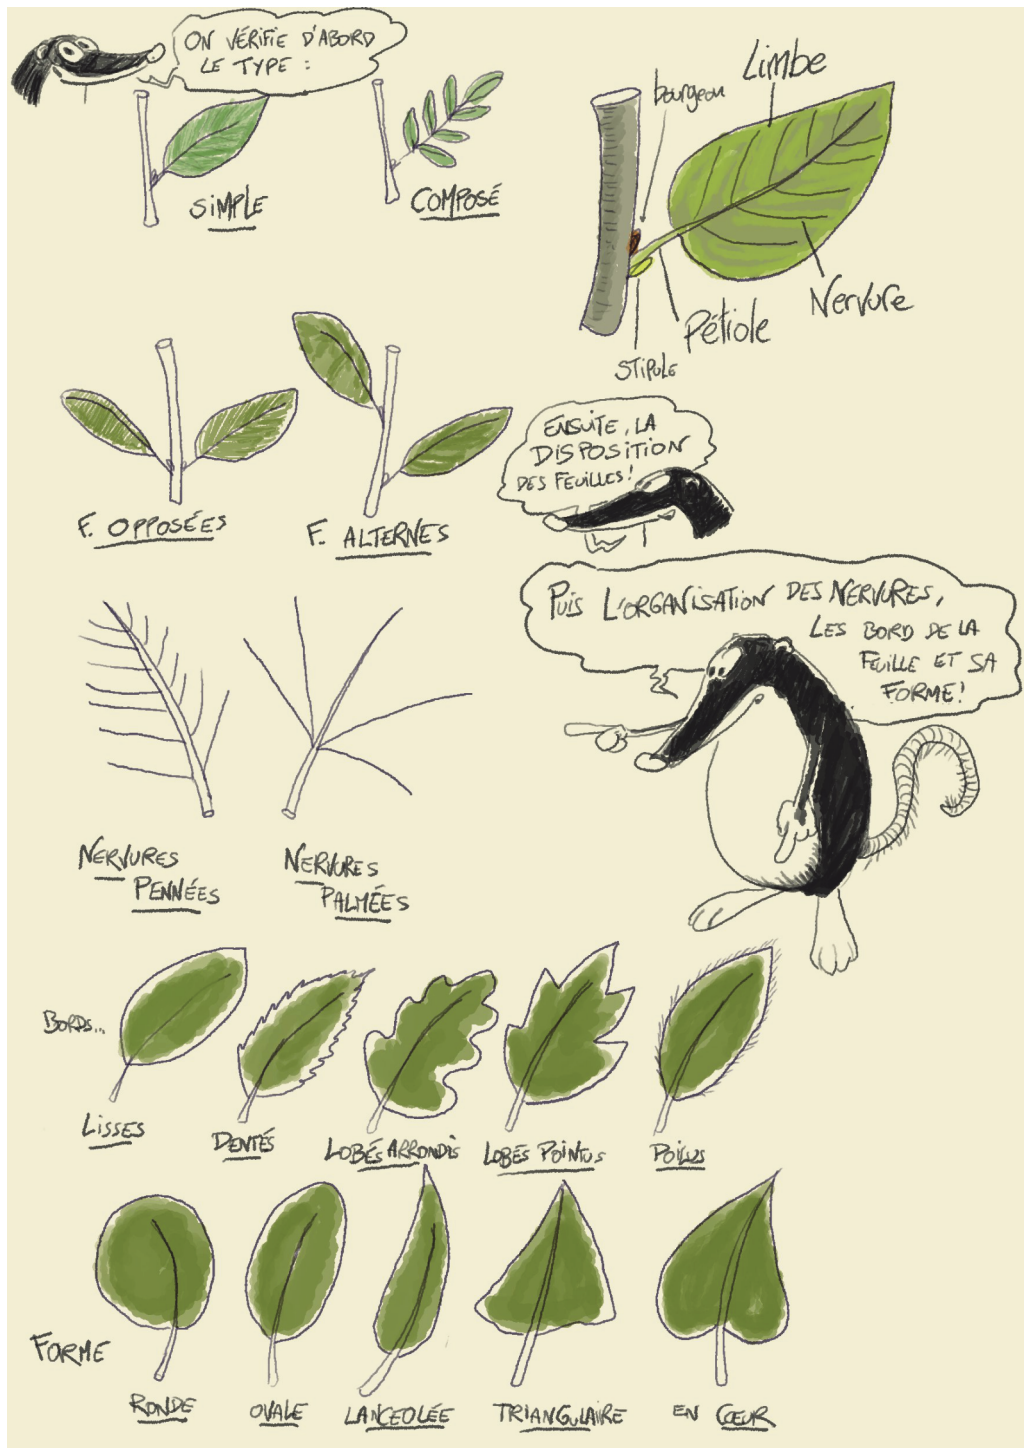 ON VÉRIFIE D'ABORD
LE TYPE :
SIMPLE
COMPOSÉ
Limbe
bourgeon
Nervure
Pétiole
STIPULE
F. OPPOSÉES
F. ALTERNES
ENSUITE, LA
DISPOSITION
DES FEUILLES!
PUIS L'ORGANISATION DES NERVURES,
LES BORD DE LA
FEUILLE ET SA
FORME!
NERVURES
PENNÉES
NERVURES
PALMÉES
BORDS...
LISSES
DENTÉS
LOBÉS ARRONDIS
LOBÉS POINTUS
POILUS
FORME
RONDE
OVALE
LANCEOLÉE
TRIANGULAIRE
EN CŒUR